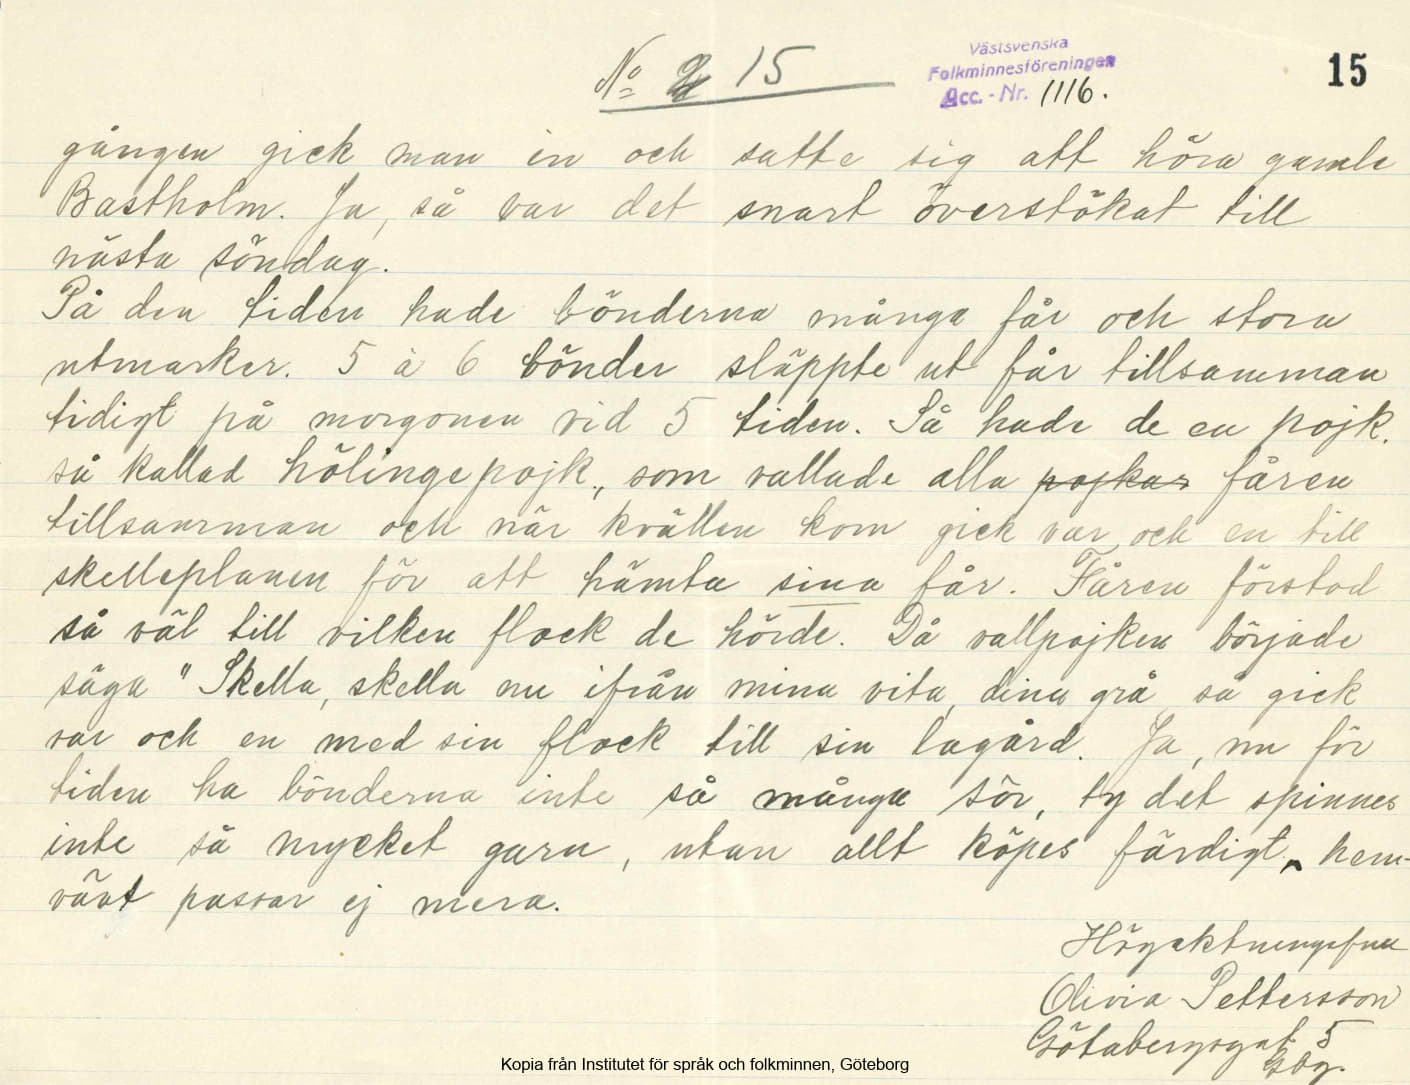 No 15
Västsvenska
Folkminnesföreningen
Acc. - Nr. 1116.
15
gången gick man in och satte sig att höra gamle
Bastholm. Ja, så var det snart överstökat till
nästa söndag.
På den tiden hade bönderna många får och stora
utmarker. 5 à 6 bönder släppte ut får tillsamman
tidigt på morgonen vid 5 tiden. Så hade de en pojk.
så kallad hölingepojk., som vallade alla pojkar fåren
tillsamman och när kvällen kom gick var och en till
skelleplanen för att hämta sina får. Fåren förstod
så väl till vilken flock de hörde. Då vallpojken började
säga "Skella, skella nu ifrån mina vita, dina grå så gick
var och en med sin flock till sin lagård. Ja, nu för
tiden ha bönderna inte så många sör, ty det spinnes
inte så mycket garn, utan allt köpes färdigt, hem-
vävt passar ej mera.
Högaktningsfull
Olivia Pettersson
Götabergsgat. 5
Gbg.
Kopia från Institutet för språk och folkminnen, Göteborg